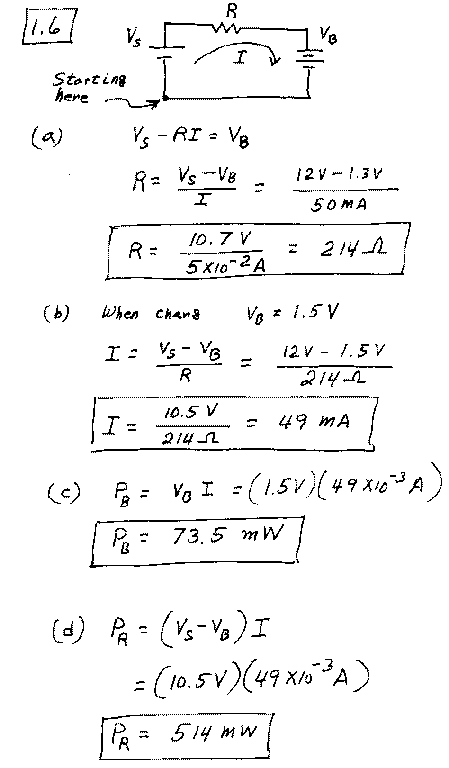 1.6
R
Vs
VB
I
Starting
here
(a) Vs - RI = VB
R = Vs - VB / I = 12V - 1.3V / 50 mA
R = 10.7 V / 5x10^-2 A = 214 Ω
(b) When charg VB = 1.5 V
I = Vs - VB / R = 12V - 1.5V / 214 Ω
I = 10.5 V / 214 Ω = 49 mA
(c) PB = VB I = (1.5V)(49x10^-3 A)
PB = 73.5 mW
(d) PR = (Vs - VB) I
= (10.5V)(49x10^-3 A)
PR = 514 mW